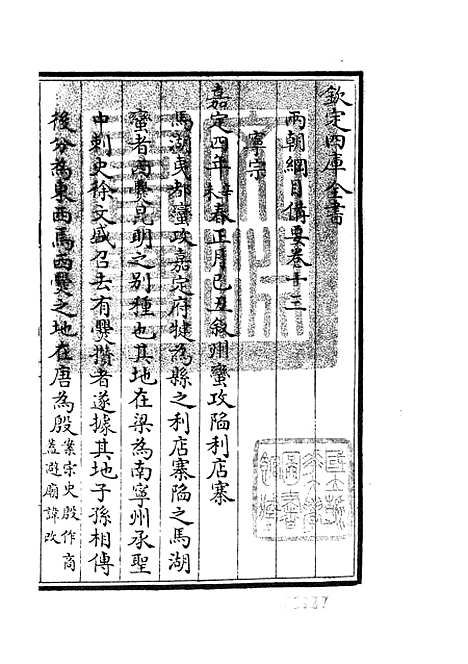 欽定四庫全書
兩朝綱目備要卷十三
寧宗
嘉定四年辛未春正月己丑敘州蠻攻陷利店寨
馬湖夷都蠻攻嘉定府犍為縣之利店寨陷之馬湖
蠻者西爨昆明之別種也其地在梁為南寧州承聖
中刺史徐文盛召去有爨攢者遂據其地子孫相傳
後分為東西焉西爨之地在唐為殷案宗史殷作商
蓋避廟諱改